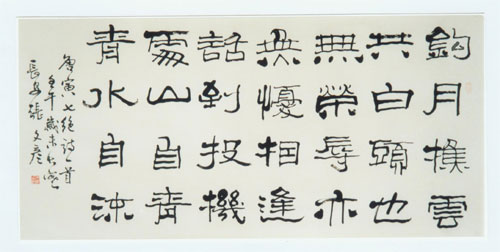 釣月樵雲
共白頭也
無榮辱亦
無憂相逢
話到投機
處山自青
青水自流
唐寅七絕詩一首
壬午歲末
長安張文彥